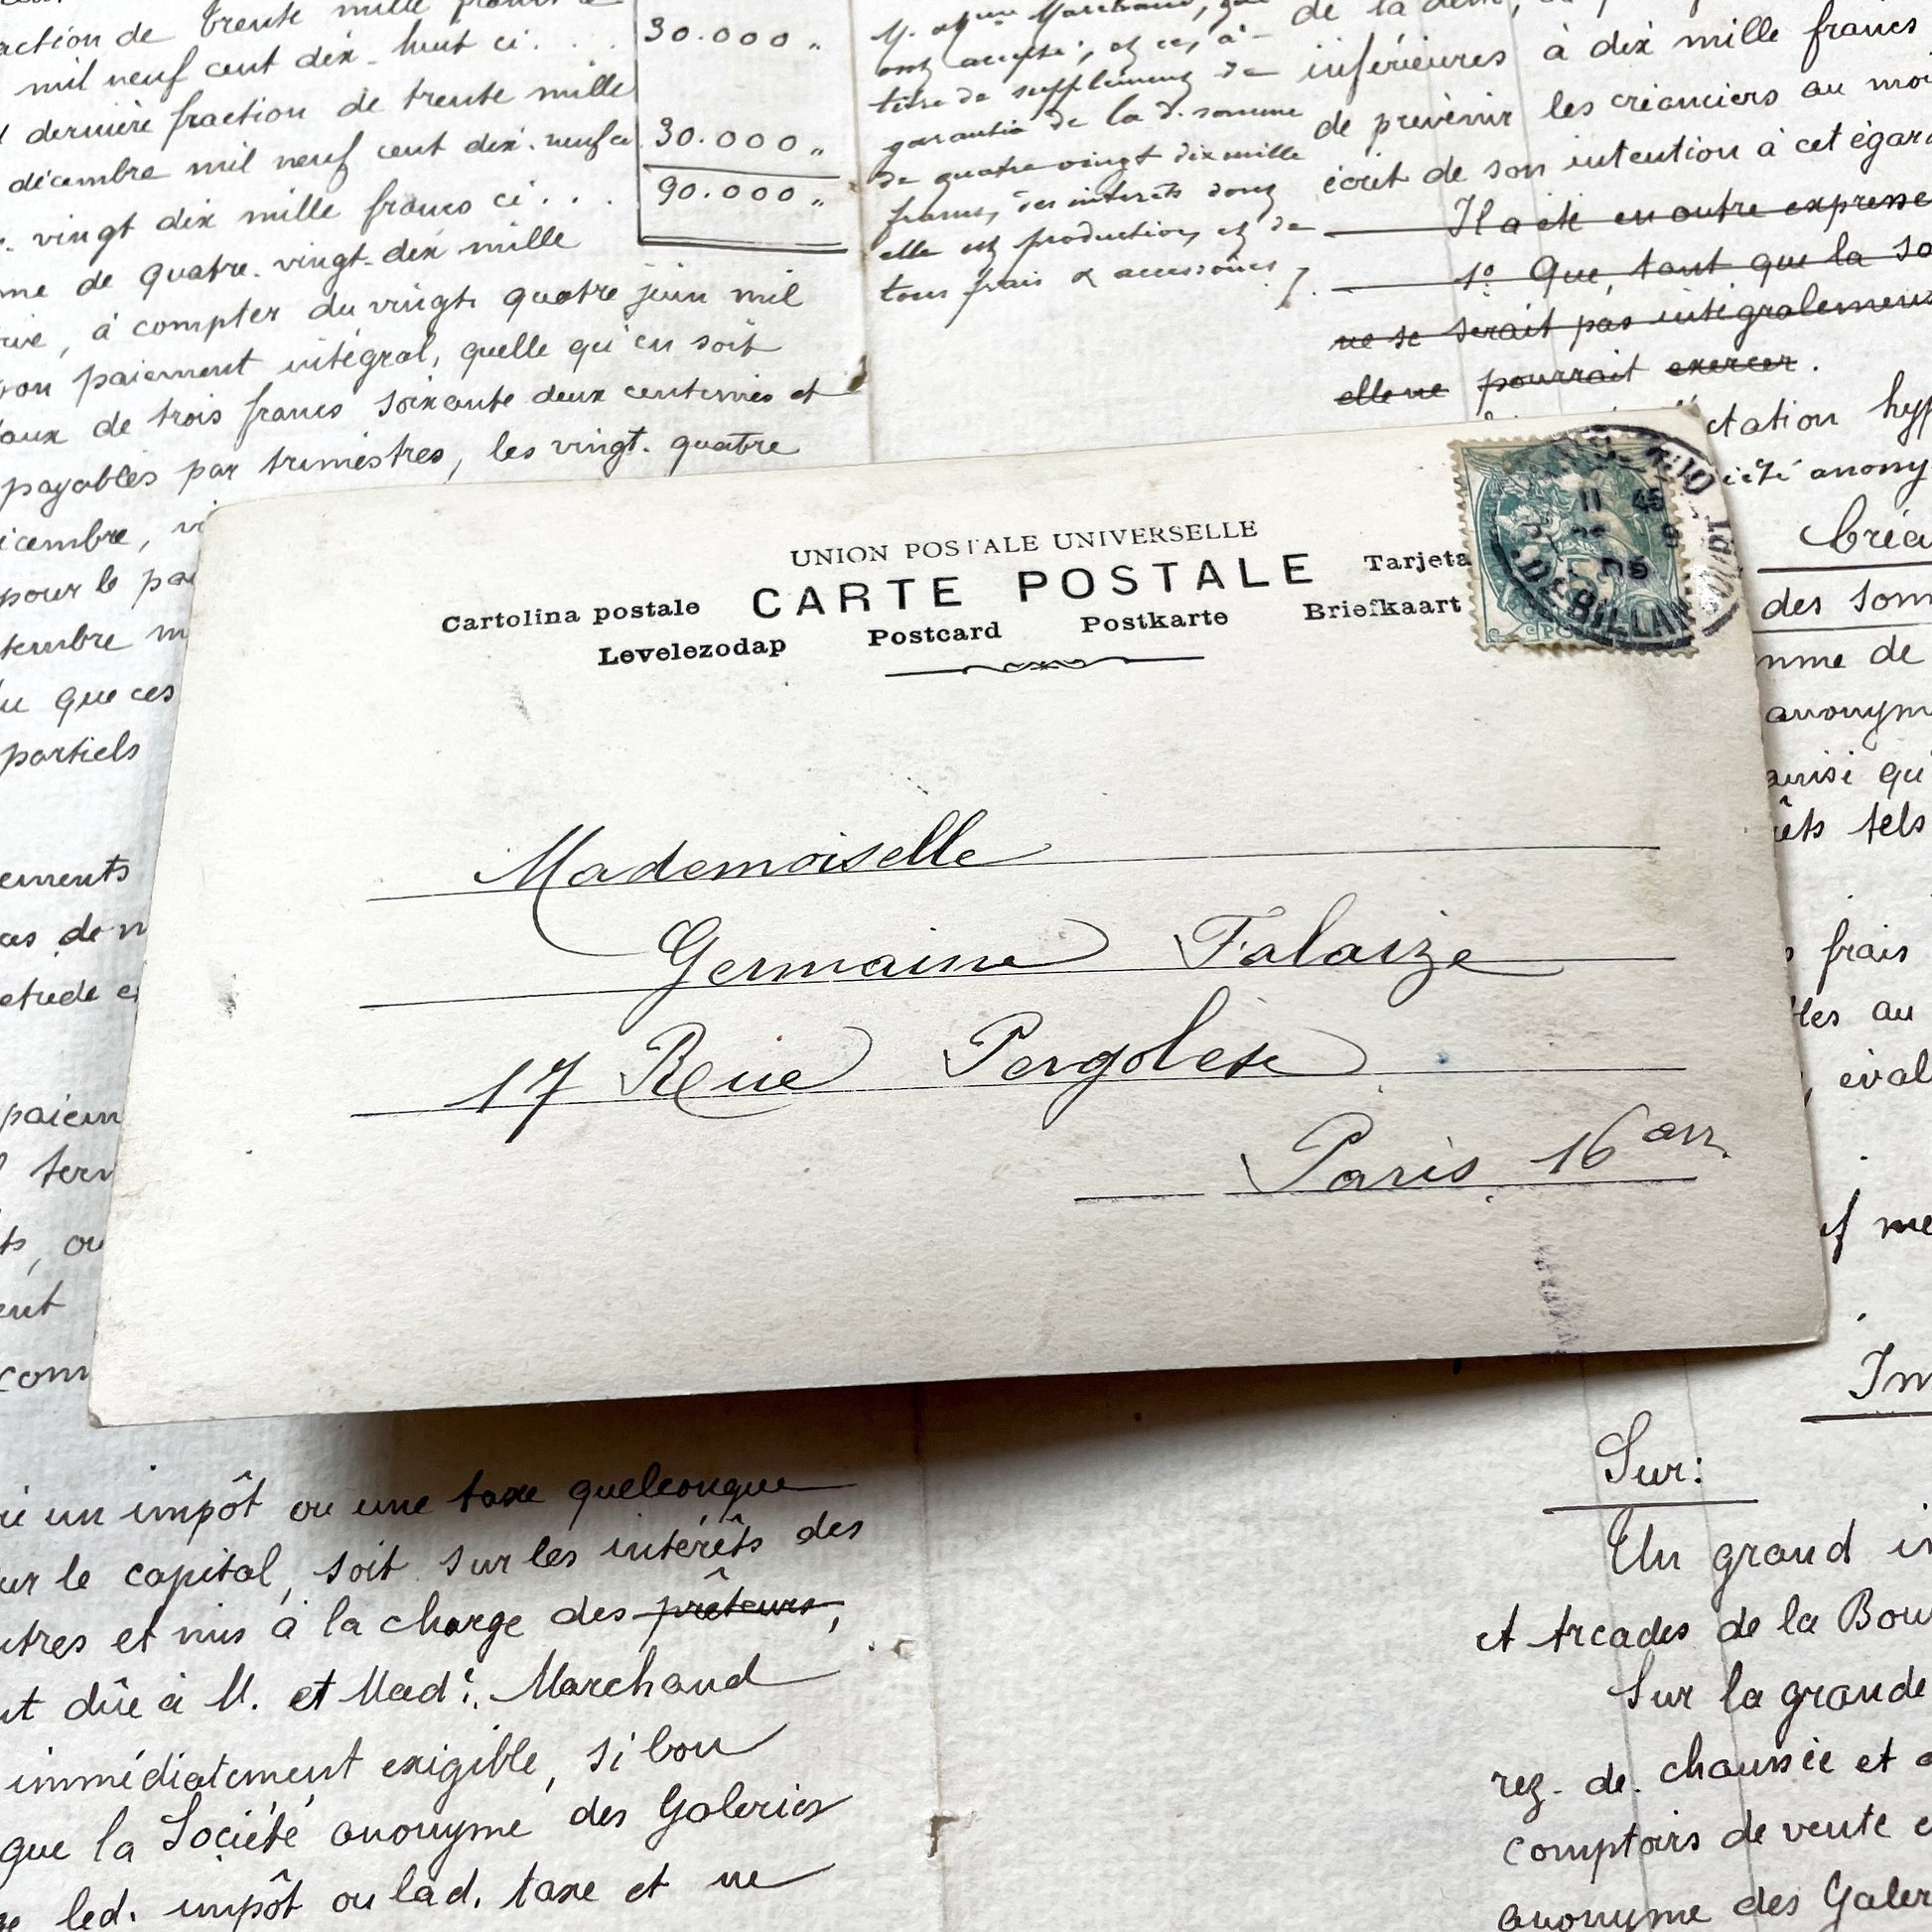 action de trente mille
mil neuf cent dix-huit ci . . . 30.000 "
dernière fraction de trente mille
décembre mil neuf cent dix-neuf ci 30.000 "
vingt dix mille francs ci . . . 90.000 "
me de quatre-vingt-dix mille
, à compter du vingt quatre juin mil
paiement intégral, quelle qu'en soit
aux de trois francs soixante deux centimes et
payables par trimestres, les vingt-quatre
icembre,
pour le
tembre
que ces
partiels
ements
paiem
M. et Mme Marchand,
ont accepté, et ce, à
titre de supplément de
garantie de la d. somme
de quatre vingt dix mille
francs, des intérêts dont
elle est productive, et de
tous frais & accessoires ./.
de la
inférieures à dix mille francs
de prévenir les créanciers au moi
écrit de son intention à cet égard
Il a été en outre expresse
1º Que, tant que la so
ne se serait pas intégralement
elle ne pourrait exercer.
ctation hyp
iété anony
Créa
des som
mme de
anonyme
ainsi qu'
êts tels
frais
les au
, éval
UNION POSTALE UNIVERSELLE
CARTE POSTALE
Cartolina postale Tarjeta
Levelezodap Postcard Postkarte Briefkaart
11 45
DE BILLAN
Mademoiselle
Germaine Falaize
17 Rue Pergolèse
Paris 16 arr.
un impôt ou une taxe quelconque
ur le capital, soit sur les intérêts des
utres et mis à la charge des prêteurs,
nt dûe à M. et Made. Marchand
immédiatement exigible, si bon
que la Société anonyme des Galeries
led. impôt ou lad. taxe et ne
Im
Sur:
Un grand im
et Arcades de la Bou
Sur la grande
rez-de-chaussée et
comptoirs de vente
anonyme des Galer